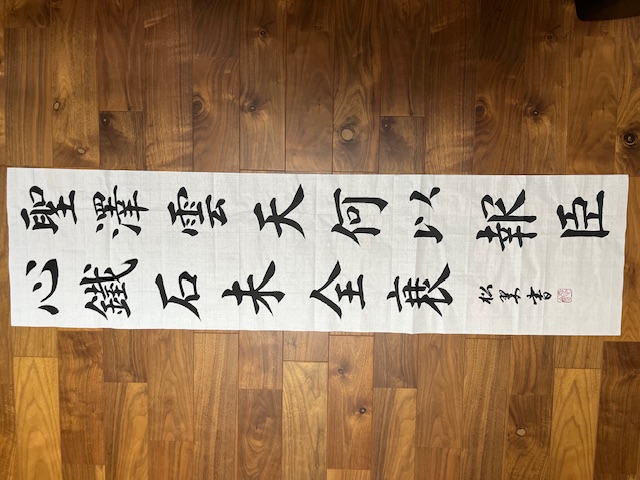 聖澤雲天何以報臣
心鐵石未全衰
松書